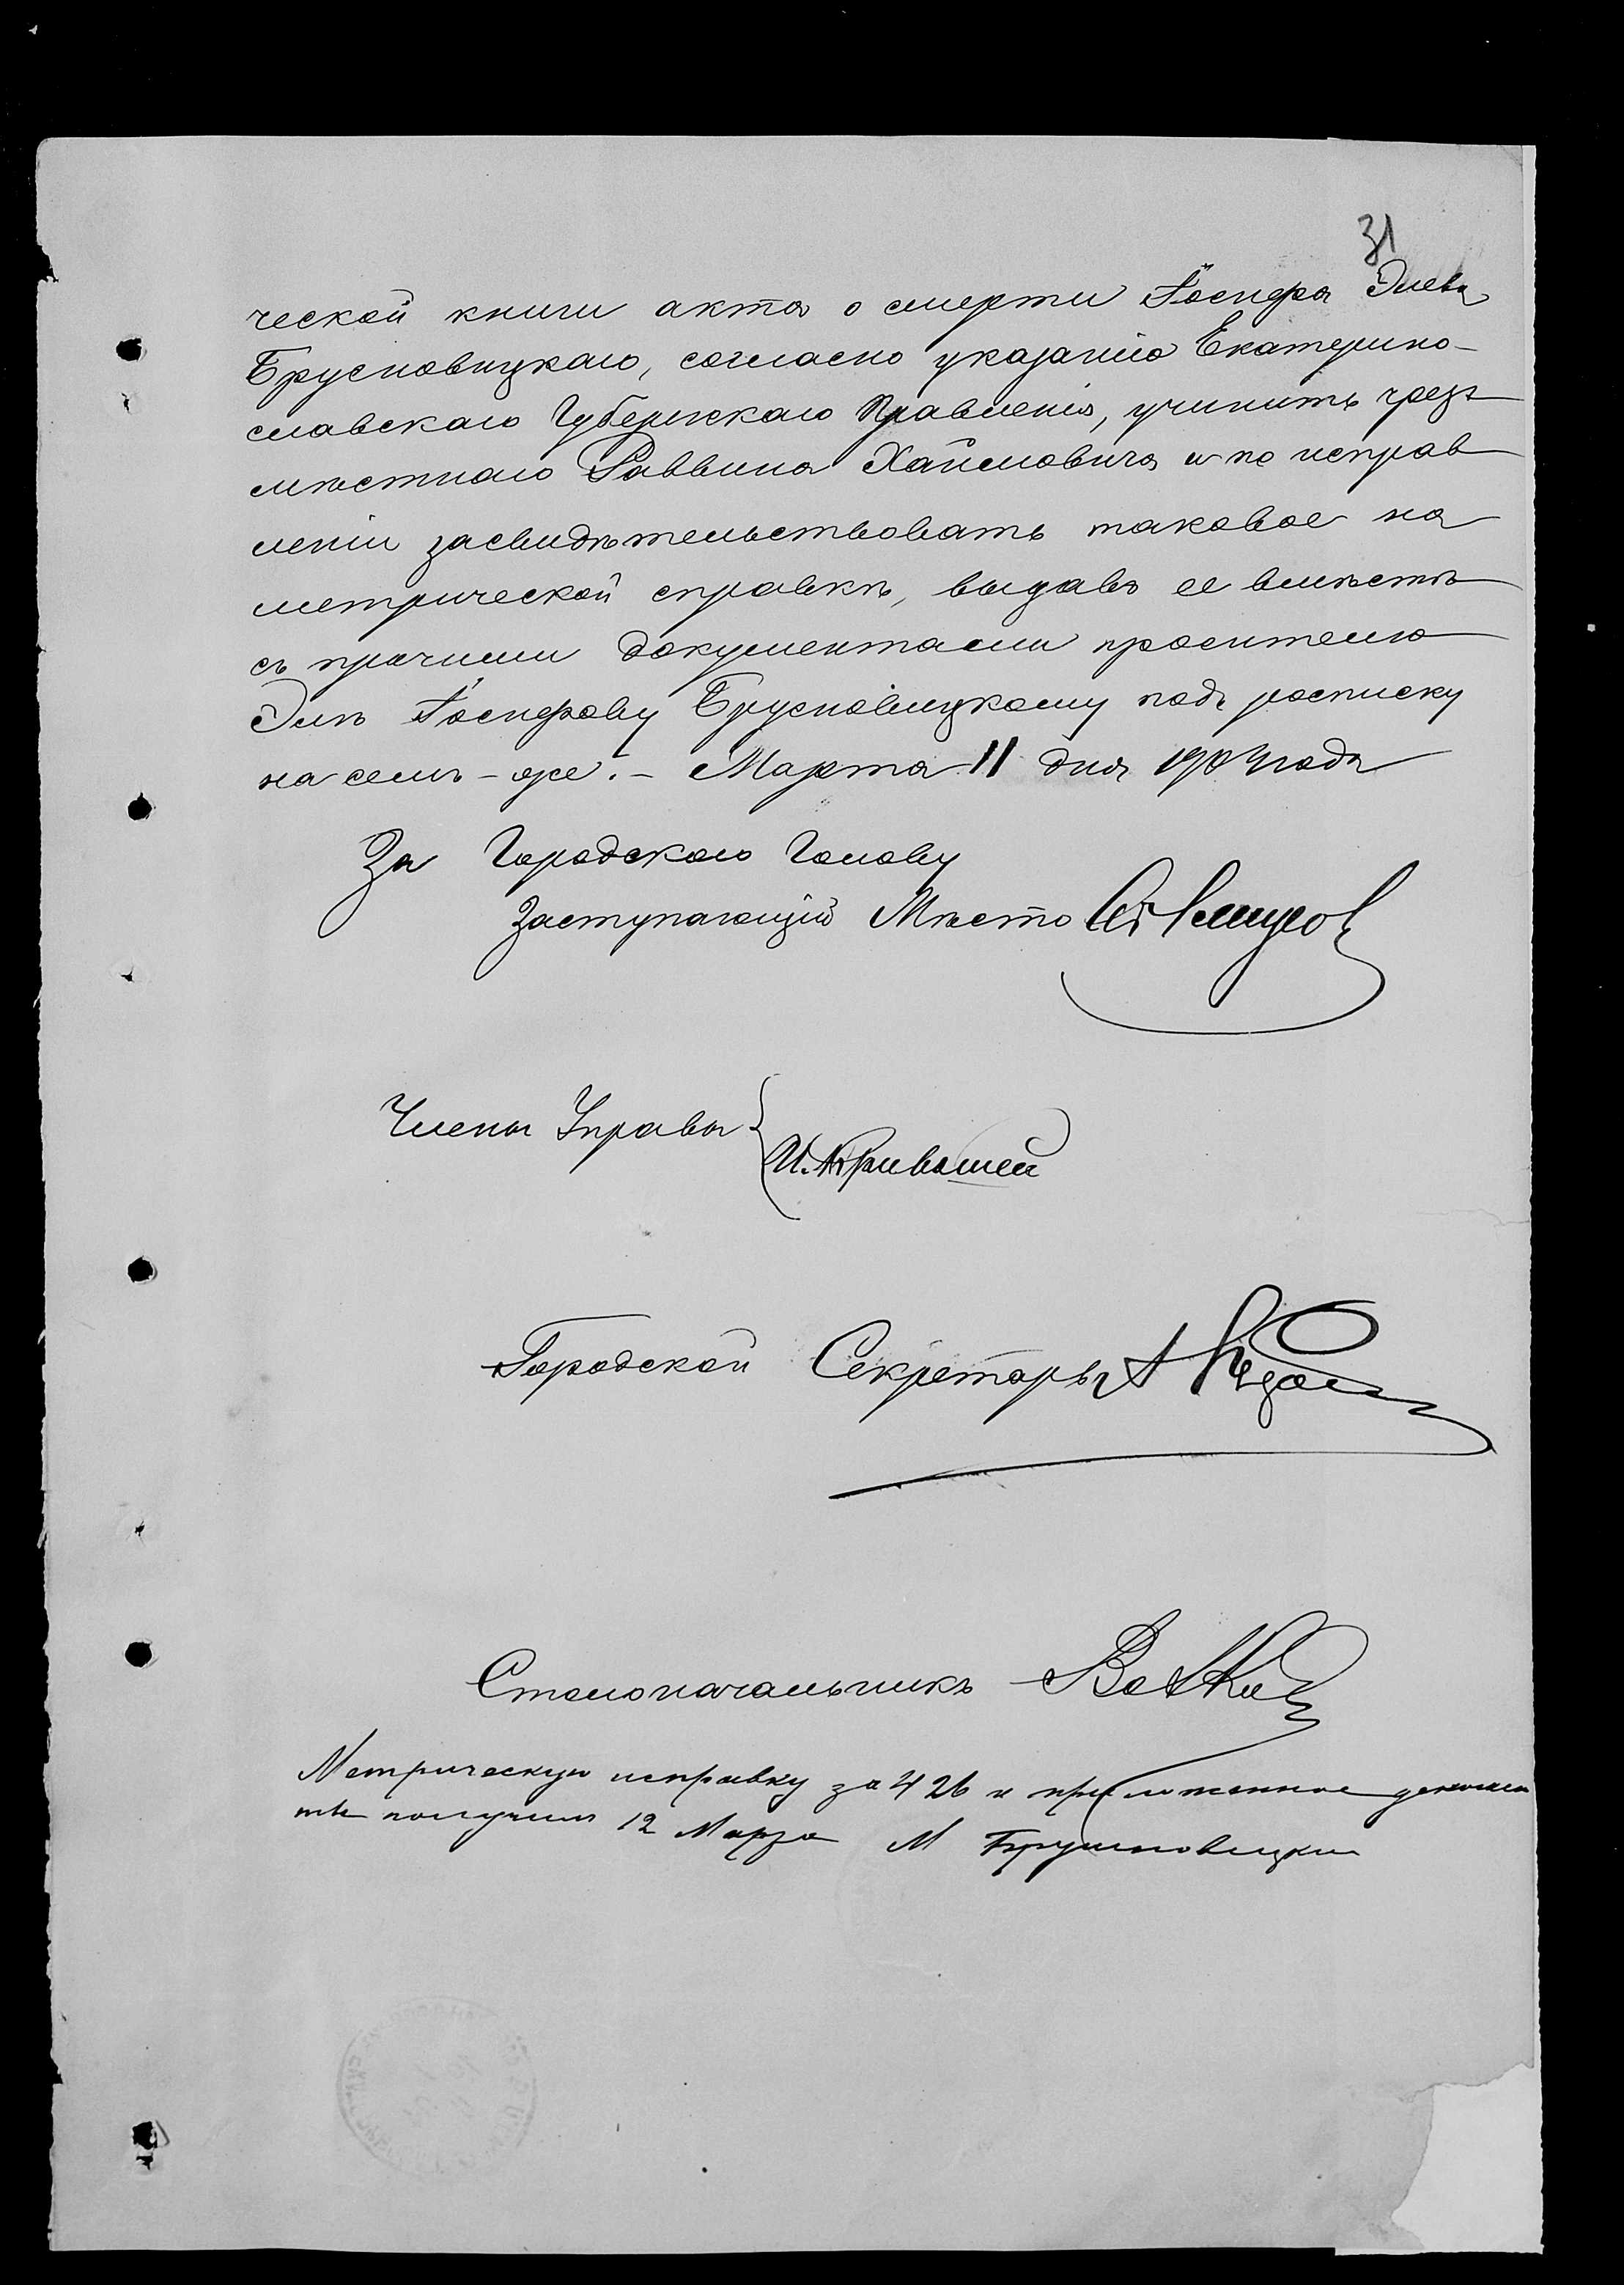 31
ческой книги акта о смерти Іосифа Элева
Брусиловицкаго, согласно указанію Екатерино-
славскаго Губернскаго Правленія, учинить чрезъ
мѣстнаго Раввина Хаймовича и по исправ
леніи засвидѣтельствовать таковое на
метрической справкѣ, выдавъ ее вмѣстѣ
съ прочими документами просителю
Элѣ Іосифову Брусиловицкому подъ росписку
на семъ-же. - Марта 11 дня 1904 года
За Городского Голову
Заступающій Мѣсто
Члены Управы
И. Кривошей
Городской Секретарь
Столоначальникъ
Метрическую исправку за 426 и приложенные
получилъ 12 Марта М Брусиловицкій